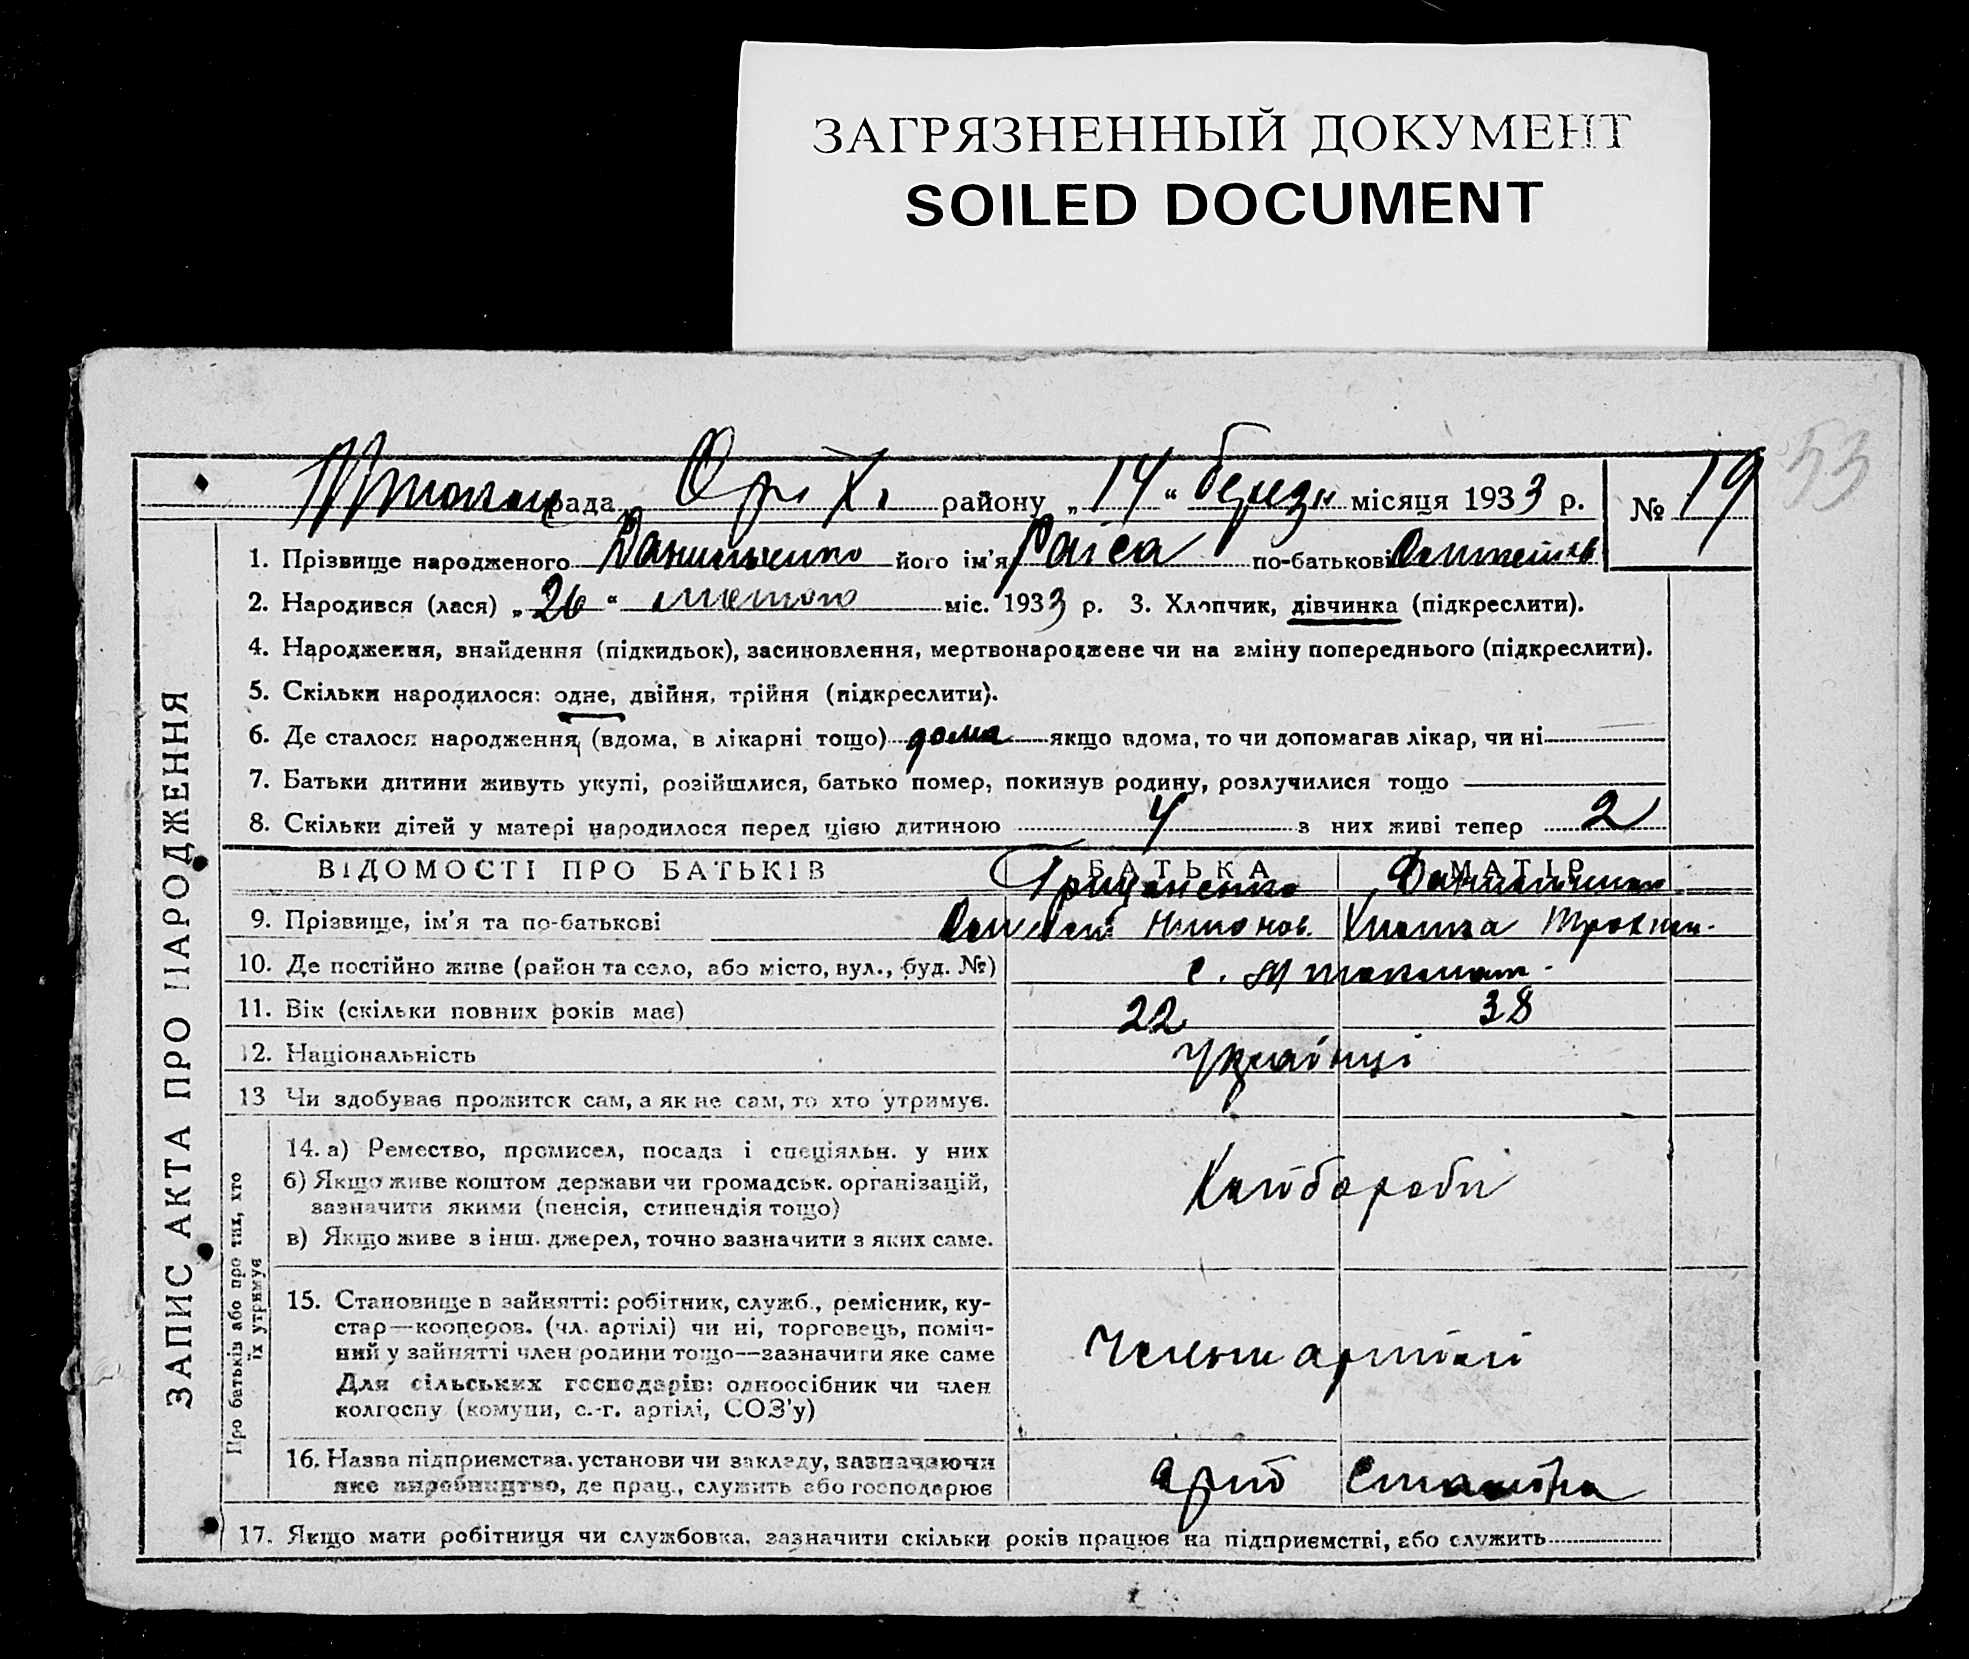 ЗАГРЯЗНЕННЫЙ ДОКУМЕНТ
SOILED DOCUMENT
53
рада Оріх. району „14“ березня місяця 1933 р. № 19
ЗАПИС АКТА ПРО НАРОДЖЕННЯ
1. Прізвище народженого Данильченко його ім'я Раіса по-батькові
2. Народився (лася) „26“ лютого міс. 1933 р. 3. Хлопчик, дівчинка (підкреслити).
4. Народження, знайдення (підкидьок), засиновлення, мертвонароджене чи на зміну попереднього (підкреслити).
5. Скільки народилося: одне, двійня, трійня (підкреслити).
6. Де сталося народження, (вдома, в лікарні тощо) дома якщо вдома, то чи допомагав лікар, чи ні
7. Батьки дитини живуть укупі, розійшлися, батько помер, покинув родину, розлучилися тощо
8. Скільки дітей у матері народилося перед цією дитиною 4 з них живі тепер 2
ВІДОМОСТІ ПРО БАТЬКІВ БАТЬКА МАТІР
Грицаненко
9. Прізвище, ім'я та по-батькові
10. Де постійно живе (район та село, або місто, вул., буд. №) с.
11. Вік (скільки повних років має) 22 38
12. Національність Українці
13 Чи здобуває прожиток сам, а як не сам, то хто утримує.
Про батьків або про тих, хто їх утримує
14. а) Ремество, промисел, посада і спеціяльн. у них
б) Якщо живе коштом держави чи громадськ. організацій,
зазначити якими (пенсія, стипендія тощо)
Хлібороби
в) Якщо живе з інш. джерел, точно зазначити з яких саме.
15. Становище в зайнятті: робітник, служб., ремісник, ку-
стар—кооперов. (чл. артілі) чи ні, торговець, поміч-
ний у зайнятті член родини тощо—зазначити яке саме
Члени артілі
Для сільських господарів: одноосібник чи член
колгоспу (комуни, с.-г. артілі, СОЗ'у)
16. Назва підприємства, установи чи закладу, зазначаючи
яке виробництво, де прац., служить або господарює арт Сталіна
17. Якщо мати робітниця чи службовка, зазначити скільки років працює на підприємстві, або служить